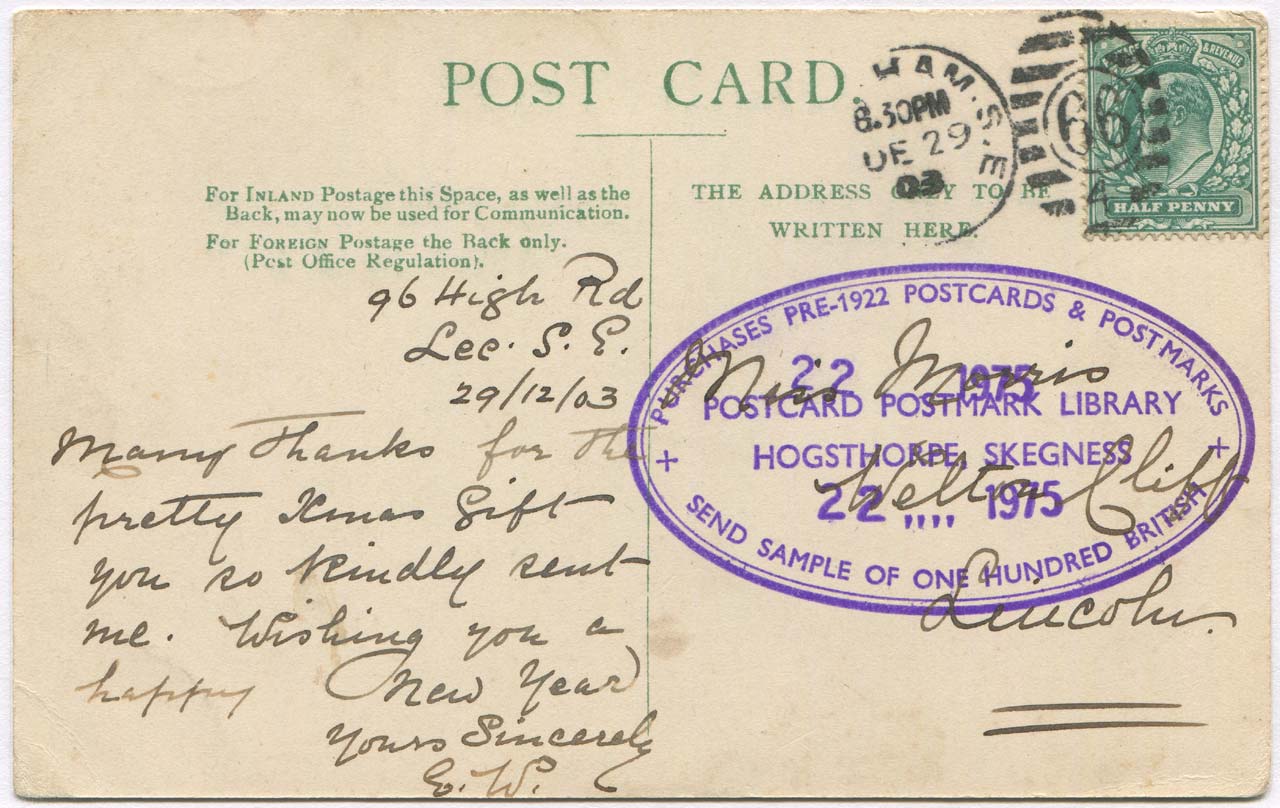 POST CARD.
For INLAND Postage this Space, as well as the
Back, may now be used for Communication.
For FOREIGN Postage the Back only.
(Post Office Regulation).
THE ADDRESS ONLY TO BE
WRITTEN HERE.
HAM.S.E
8.30PM
DE 29
03
66
4
POSTAGE & REVENUE
HALF PENNY
96 High Rd
Lee. S. E.
29/12/03
Many Thanks for the
pretty Xmas Gift
you so kindly sent
me. Wishing you a
happy New Year
Yours Sincerely
E. W.
Miss Morris
Welton Cliff
Lincoln.
PURCHASES PRE-1922 POSTCARDS & POSTMARKS
22 1975
POSTCARD POSTMARK LIBRARY
HOGSTHORPE, SKEGNESS
22 .... 1975
SEND SAMPLE OF ONE HUNDRED BRITISH